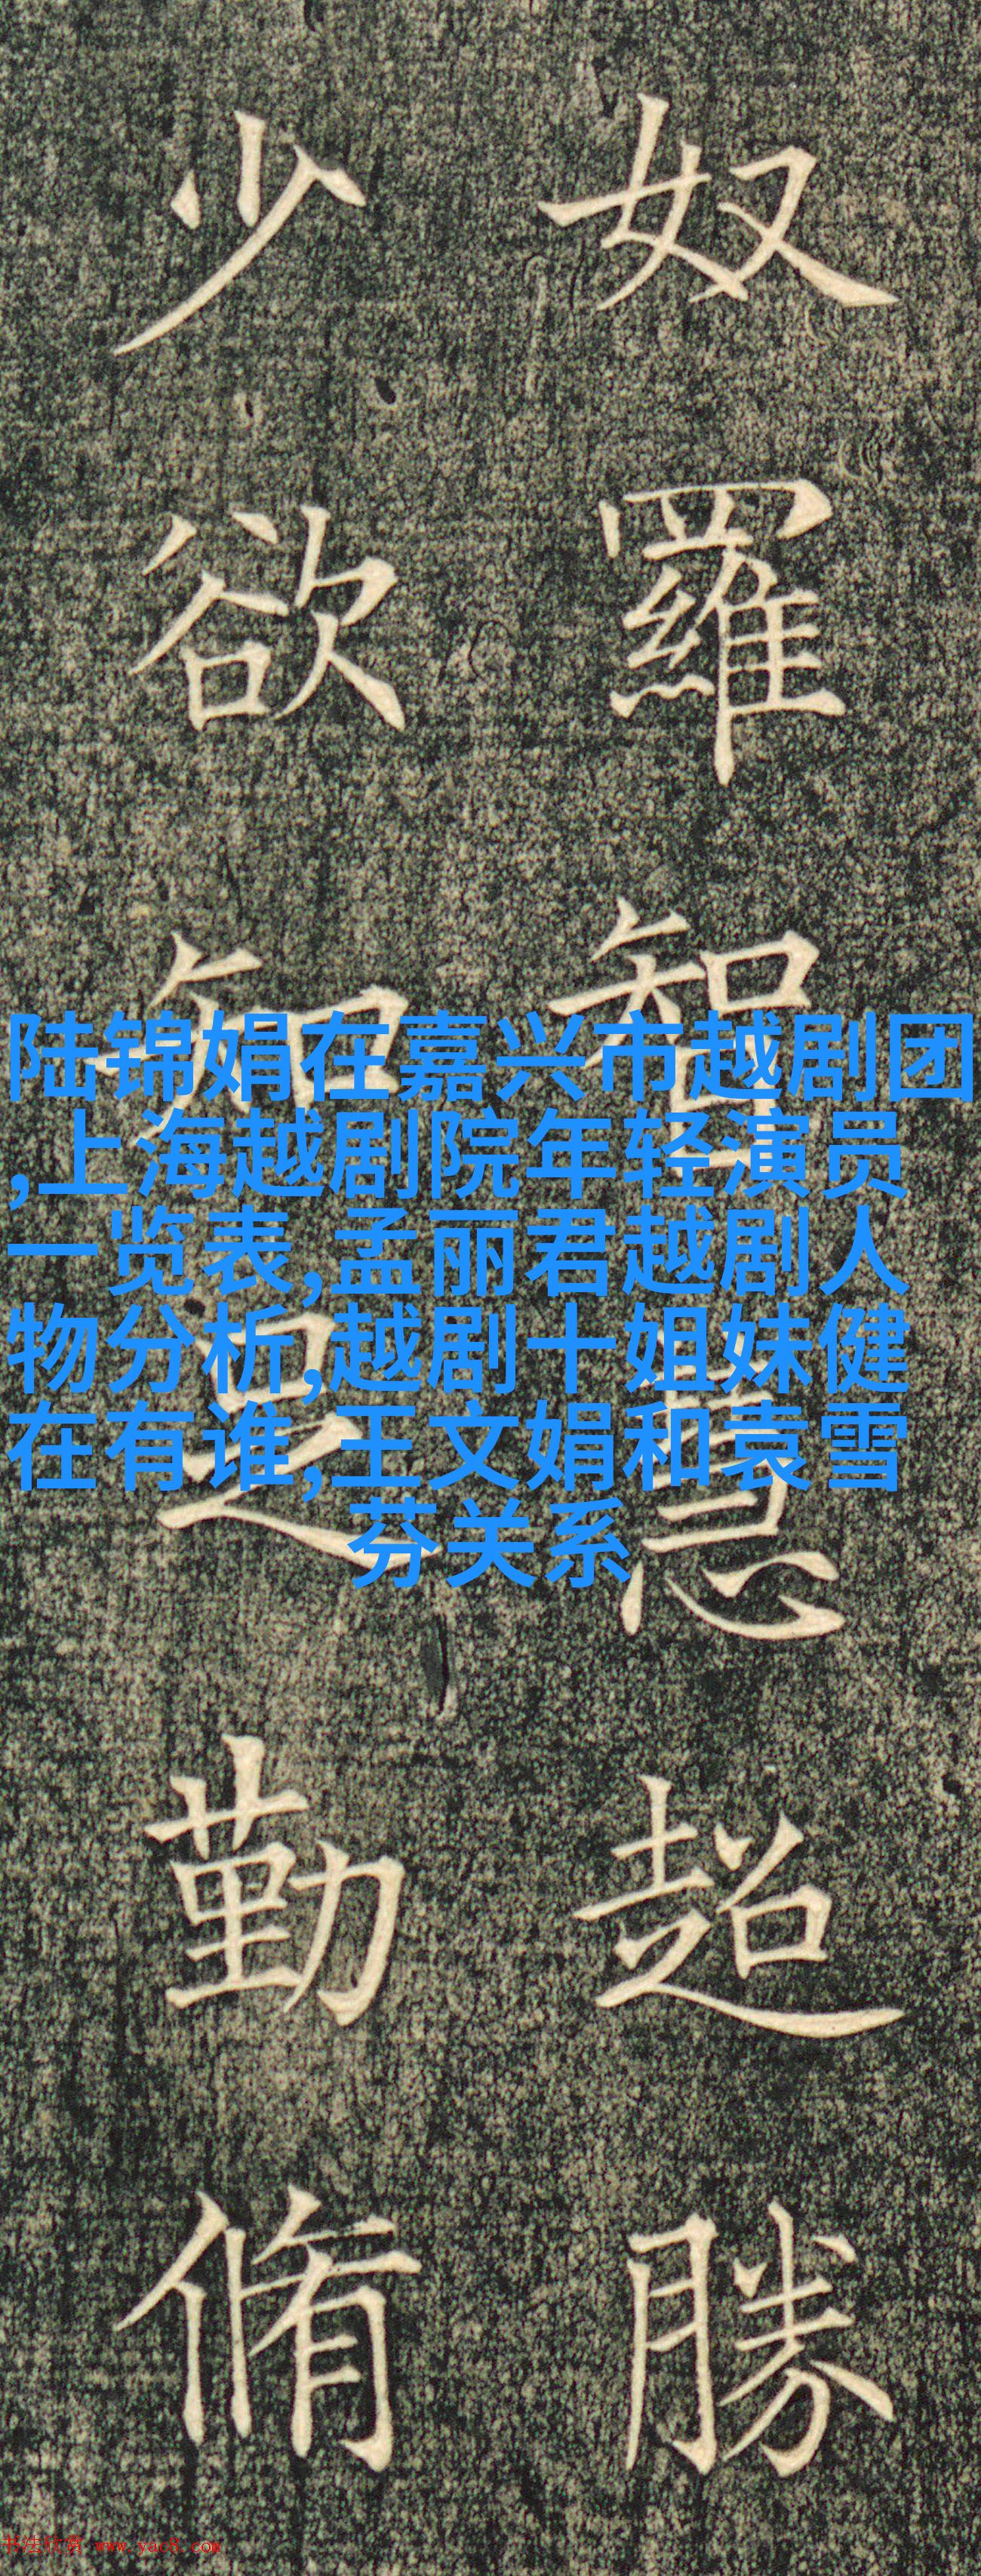 奴羅智慧超勝
少欲知足勤脩
陆锦娟在嘉兴市越剧团
,上海越剧院年轻演员
一览表,孟丽君越剧人
物分析,越剧十姐妹健
在有谁,王文娟和袁雪
芬关系
书法欣赏 www.yac8.com